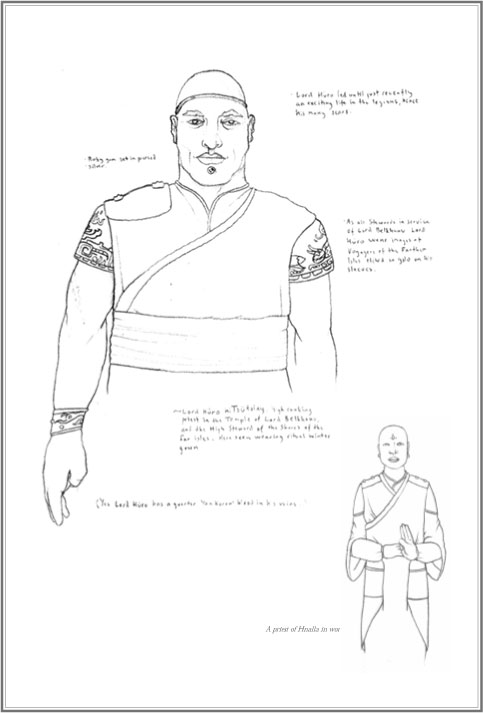 Lord Hùro led until just recently
an exciting life in the legions, hence
his many scars.
Ruby gem set in
silver.
As all Stewards in service
of Lord Belkhanu Lord
Hùro wears images of
Voyages of the Farther
Isles etched in gold on his
sleeves.
Lord Hùro Tsùkolày, high ranking
priest in the Temple of Lord Belkhanu,
and the High Steward of the Shores of the
Far Isles. Here seen wearing ritual winter
gown
The Lord Hùro has a quarter blood in his veins.
A priest of Hnalla in wor